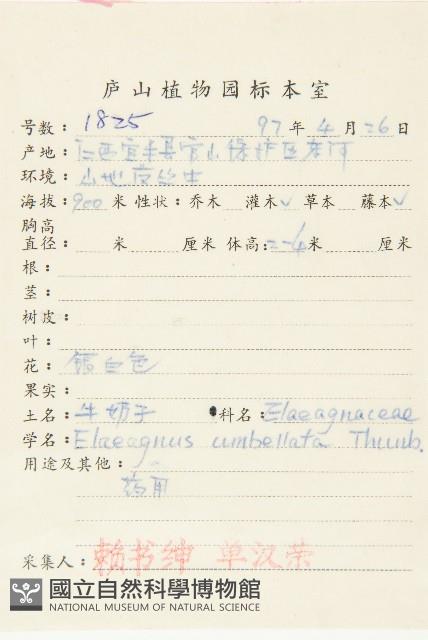 庐山植物园标本室
号数：1825 97年4月26日
产地：江西宜丰县官山保护区东河
环境：山地灌丛中
海拔：900米 性状：乔木 灌木✓ 草本 藤本✓
胸高
直径： 米 厘米 体高：2-4米 厘米
根：
茎：
树皮：
叶：
花：银白色
果实：
土名：牛奶子 科名：Elaeagnaceae
学名：Elaeagnus umbellata Thunb.
用途及其他：
药用
采集人：赖书绅 单汉荣
國立自然科學博物館
NATIONAL MUSEUM OF NATURAL SCIENCE